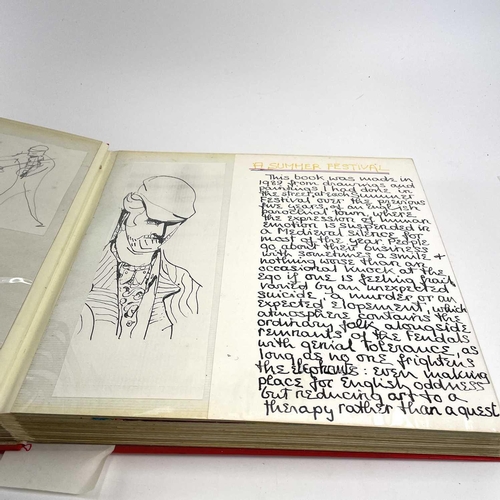 SUMMER FESTIVAL
This book was made in
1982 from drawings and
paintings I had done in
the street, at each Summer
Festival over the previous
five years, of an English
parochial town, where
the expression of human
emotion is suspended in
a Medieval silence for
most of the year. People
go about their business
with something a smile +
nothing worse than an
occasional knock at the
ego if one is feeling frail
varied by an unexpected
suicide, a murder or an
expected elopement, which
atmosphere contains the
ordinary folk alongside
remnants of the feudals
with genial tolerance, as
long as no one frightens
the elephants: even making
place for English oddness
but reducing art to a
therapy rather than a quest